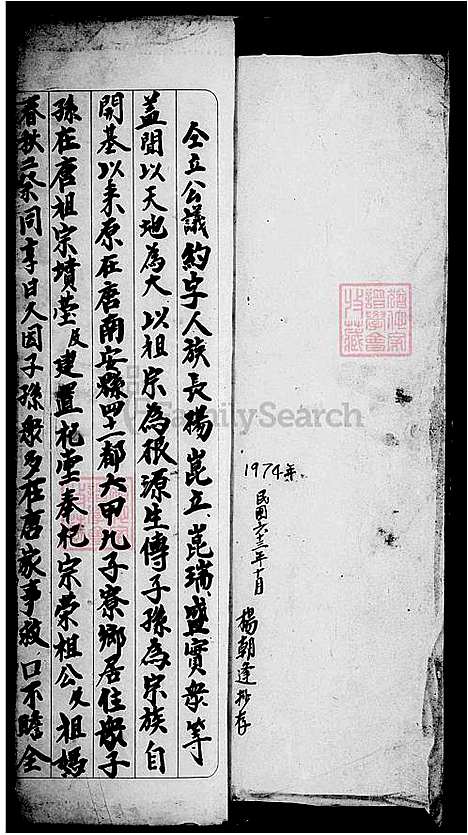 1974年
民国六十三年十月
楊朝逢抄存
仝立公議約字人族長楊崑立崑瑞盛實衆等
蓋聞以天地為大以祖宗為根源生傳子孫為宗族自
開基以來原在唐南安縣四二都大甲九子寮鄉居住衆子
孫在唐祖宗墳塋及建置祀堂奉祀宗荣祖公及祖媽
春秋二祭同享日久因子孫衆多在唐家事 口不瞻全
FamilySearch